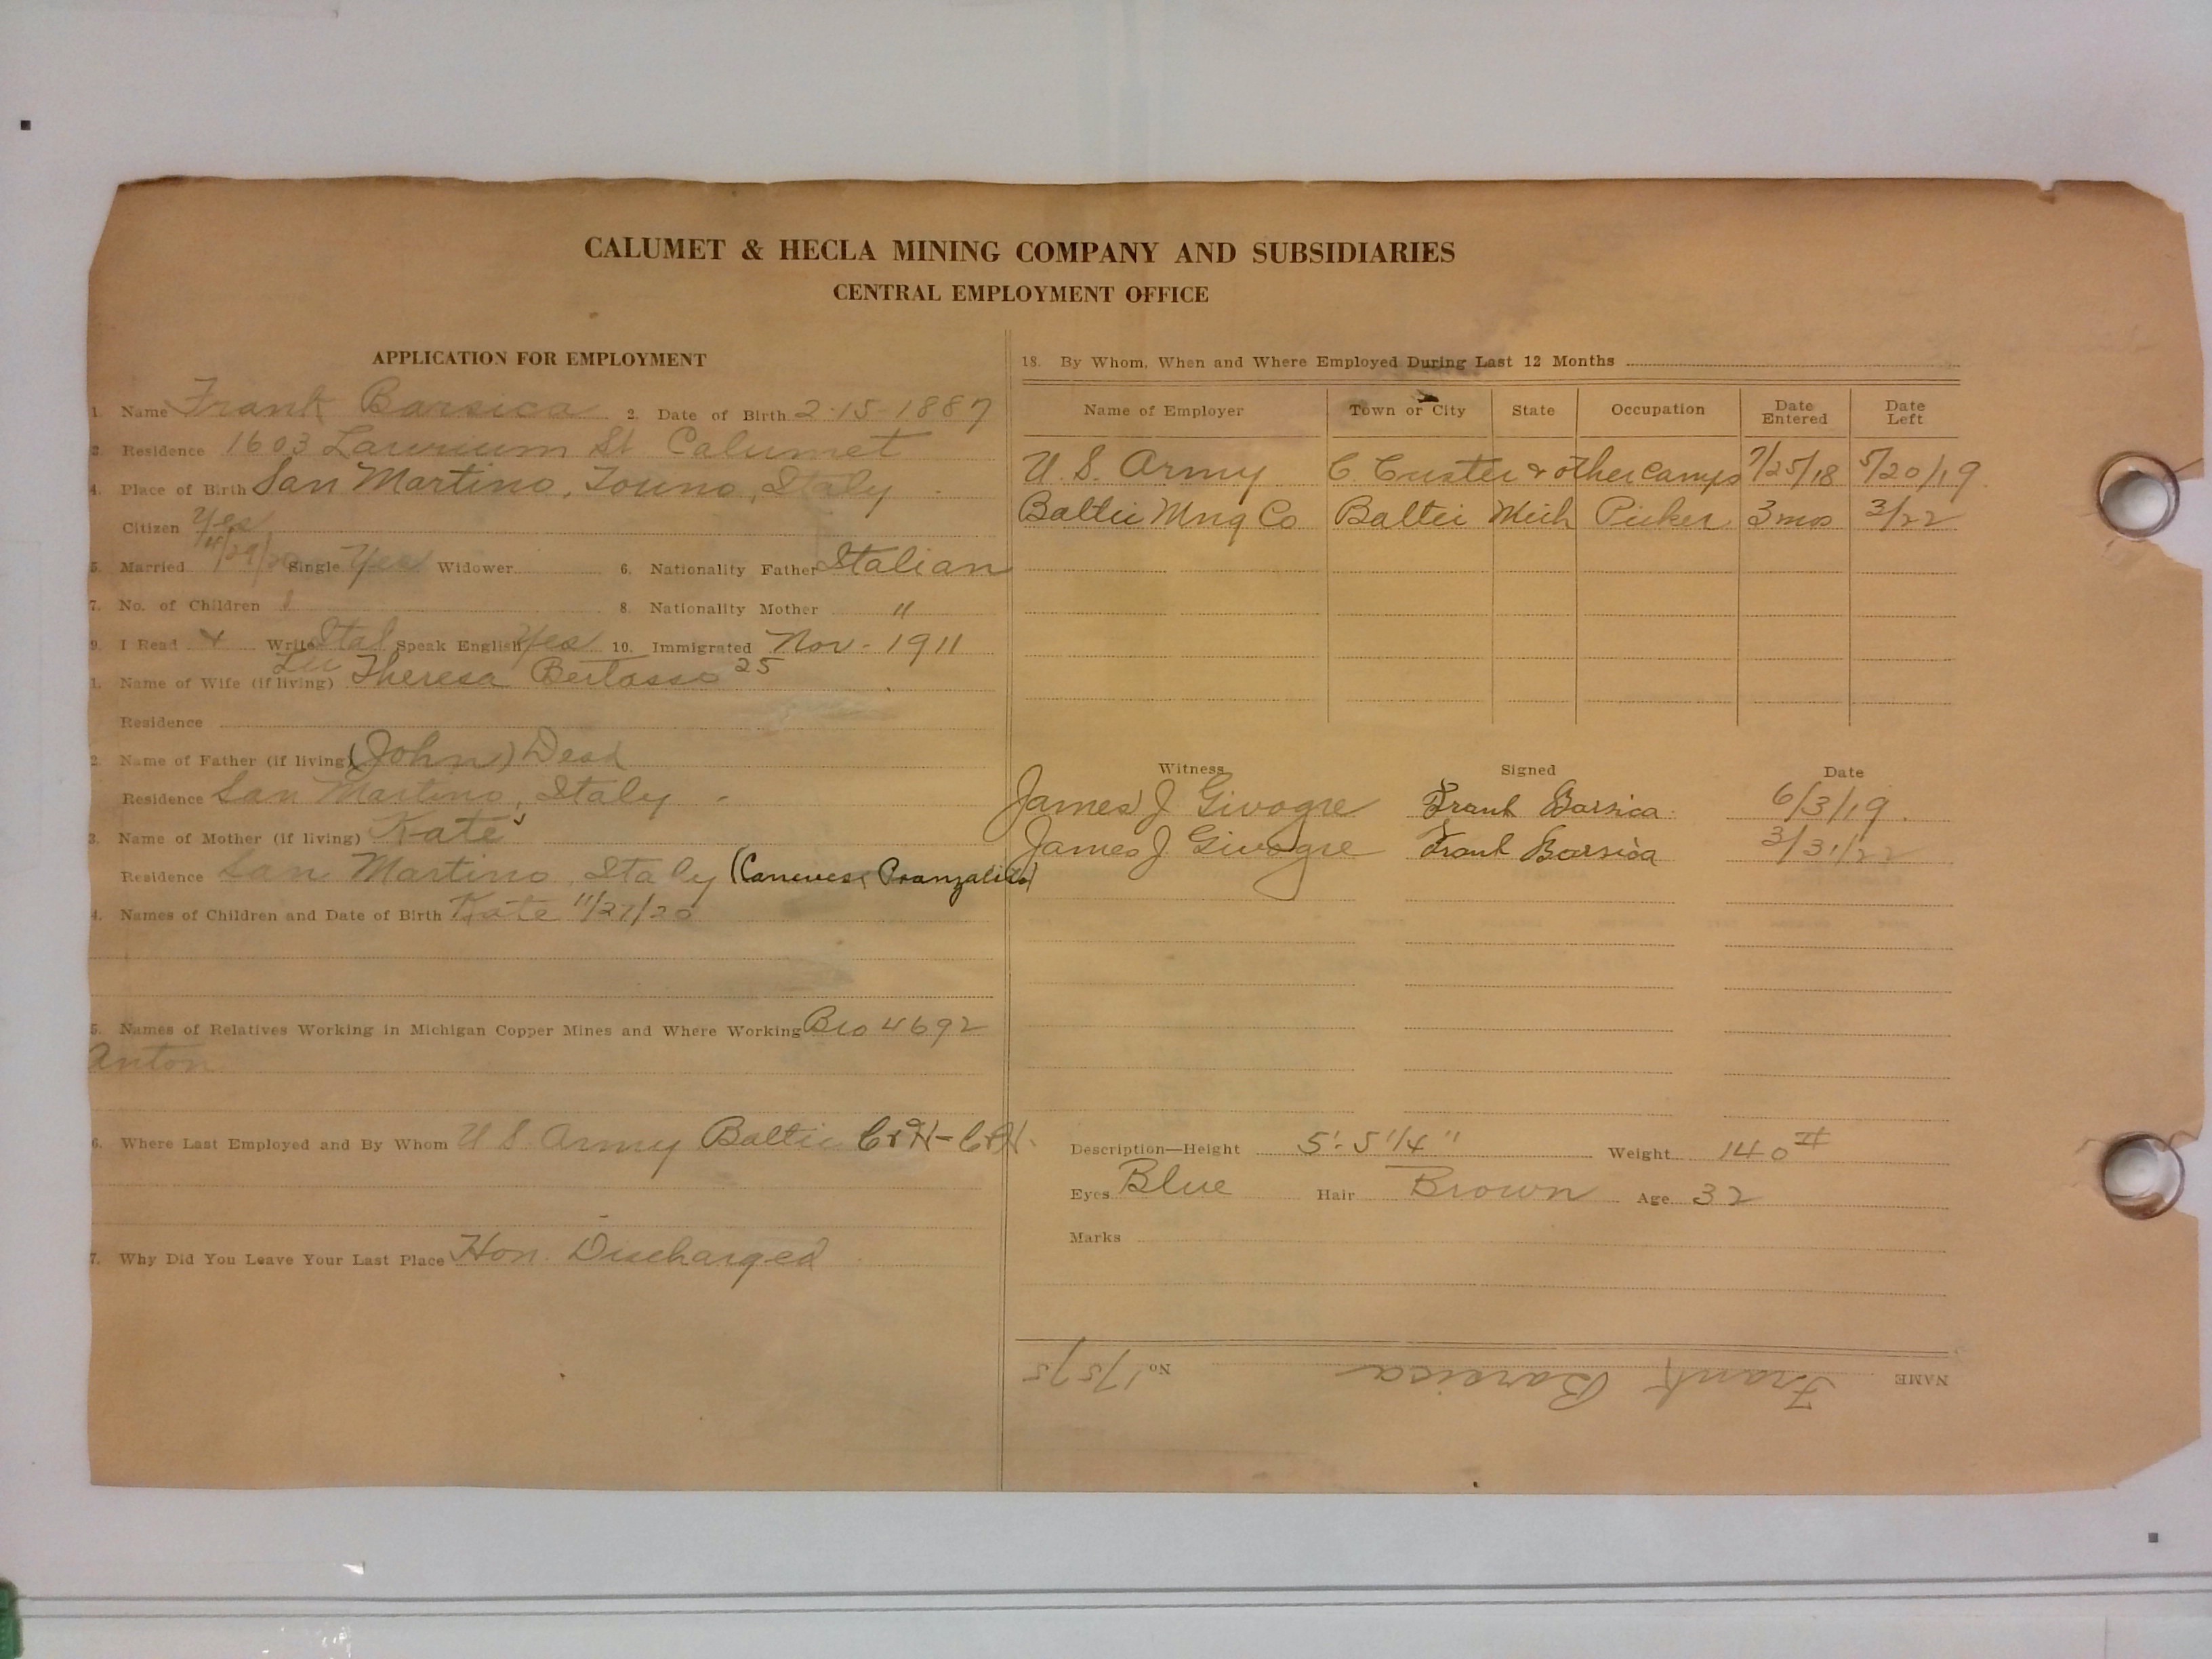 CALUMET & HECLA MINING COMPANY AND SUBSIDIARIES
CENTRAL EMPLOYMENT OFFICE
APPLICATION FOR EMPLOYMENT
1. Name Frank Barsica 2. Date of Birth 2-15-1887
3. Residence 1603 Laurium St Calumet
4. Place of Birth San Martino, Italy
Citizen Yes
5. Married 11/29/ Single Yes Widower 6. Nationality Father Italian
7. No. of Children 8. Nationality Mother "
9. I Read + Write Ital Speak English Yes 10. Immigrated Nov - 1911
1. Name of Wife (if living) Theresa Bertasso 25
Residence
2. Name of Father (if living) (John) Dead
Residence San Martino, Italy -
3. Name of Mother (if living) Kate
Residence San Martino, Italy (Canevese
4. Names of Children and Date of Birth Kate 11/27/20
5. Names of Relatives Working in Michigan Copper Mines and Where Working Bro 4692
Anton
6. Where Last Employed and By Whom U S. Army Baltic C+H- C+H.
7. Why Did You Leave Your Last Place Hon. Discharged
18. By Whom, When and Where Employed During Last 12 Months
Name of Employer Town or City State Occupation Date Entered Date Left
U. S. Army C. Custer & other camps 7/25/18 5/20/19
Baltic Mng Co Baltic Mich Picker 3 mos 3/22
Witness Signed Date
James J Givogre Frank Barsica 6/3/19.
James J Givogre Frank Barsica 3/31/22
Description—Height 5'-5 1/4" Weight 140#
Eyes Blue Hair Brown Age 32
Marks
NAME Frank Barsica No. 17575